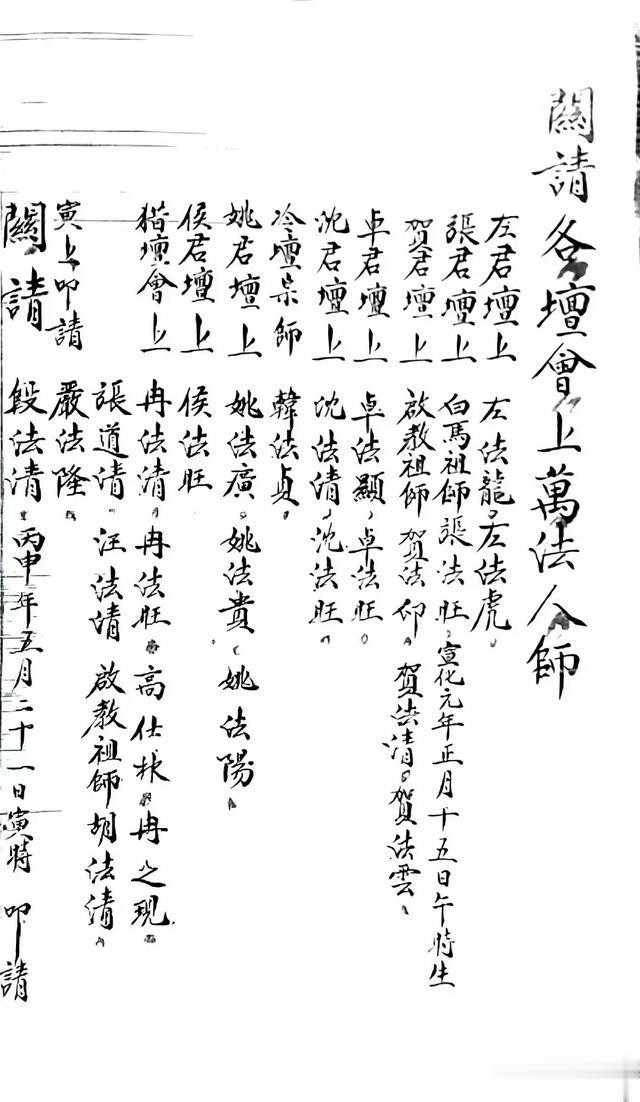 關請各壇會上萬法人師
左君壇上 左法龍 左法虎
張君壇上 白馬祖師張法旺 宣化元年正月十五日午時生
賀君壇上 啟教祖師賀法仰 賀法清 賀法雲
卓君壇上 卓法顯 卓法旺
沈君壇上 沈法清 沈法旺
冷壇宗師 韓法貞
姚君壇上 姚法廣 姚法貴 姚法陽
侯君壇上 侯法旺
猎壇會上 冉法清 冉法旺 高仕 冉之現
張道清 汪法清 啟教祖師胡法清
寅上叩請 嚴法隆
關請 段法清 丙申年五月二十一日寅時 叩請